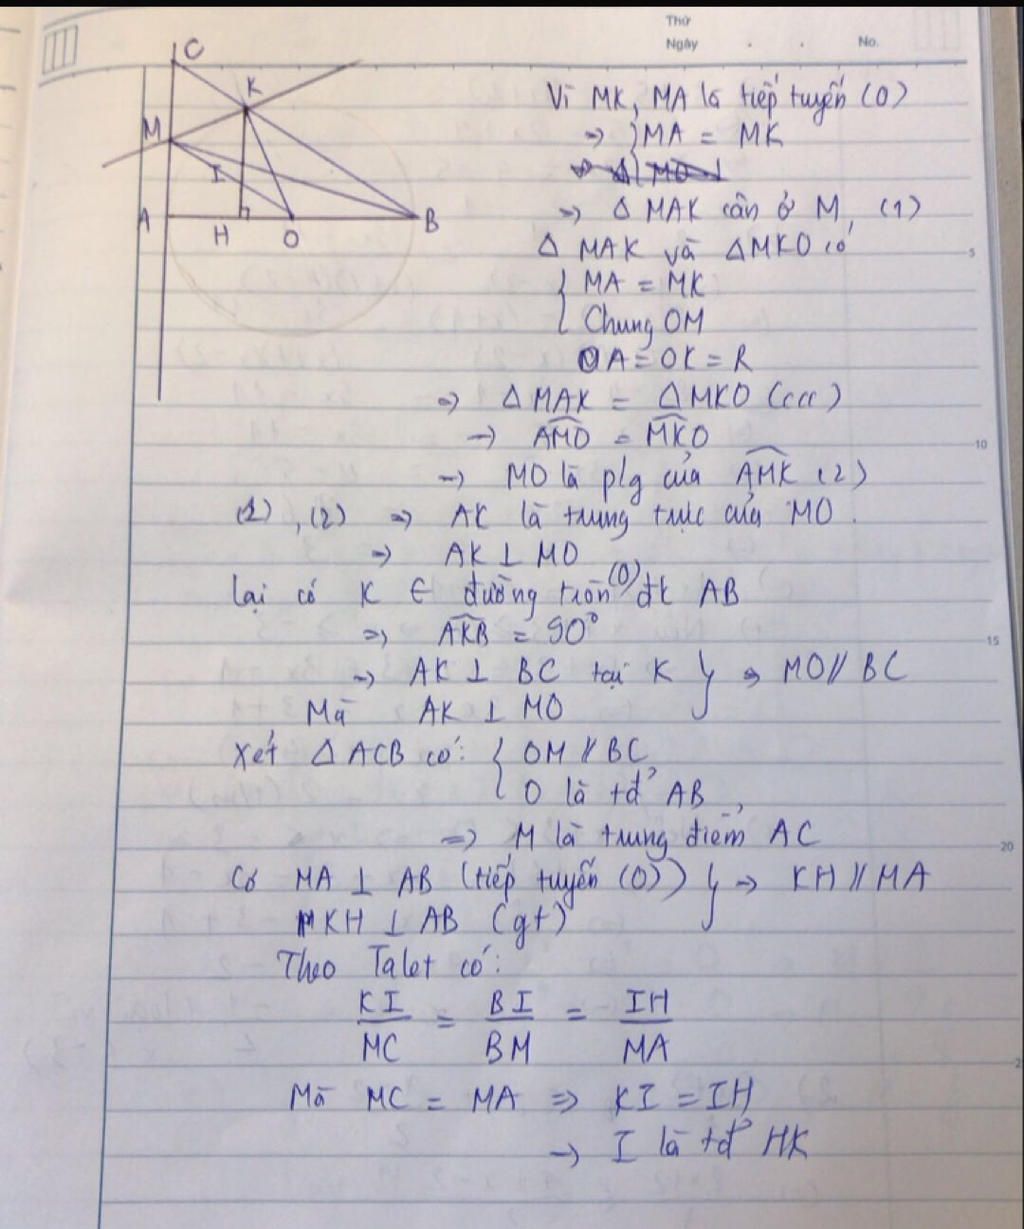 Thứ
Ngày . . No.
C
K
M
I
A
H
O
B
Vì MK, MA là tiếp tuyến (O)
=> } MA = MK
=> Δ MAK cân ở M (1)
Δ MAK và ΔMKO có
{ MA = MK
Chung OM
OA = OK = R
=> Δ MAK = Δ MKO (ccc)
-> AMO = MKO
-> MO là p/g của AMK (2)
(1), (2) => AK là trung trực của MO.
=> AK ⊥ MO
lại có K ∈ đường tròn (O) đk AB
=> AKB = 90°
-> AK ⊥ BC tại K } => MO // BC
Mà AK ⊥ MO
Xét Δ ACB có: { OM // BC
O là tđ AB
=> M là trung điểm AC
Có MA ⊥ AB (tiếp tuyến (O)) } -> KH // MA
KH ⊥ AB (gt)
Theo Talet có:
KI/MC = BI/BM = IH/MA
Mà MC = MA => KI = IH
-> I là tđ HK
5
10
15
20